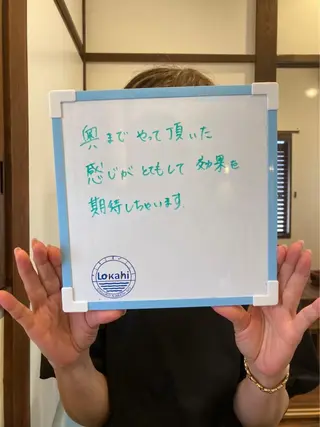 奥まで やって頂いた
感じが とてもして 効果を
期待しちゃいます
Lokahi